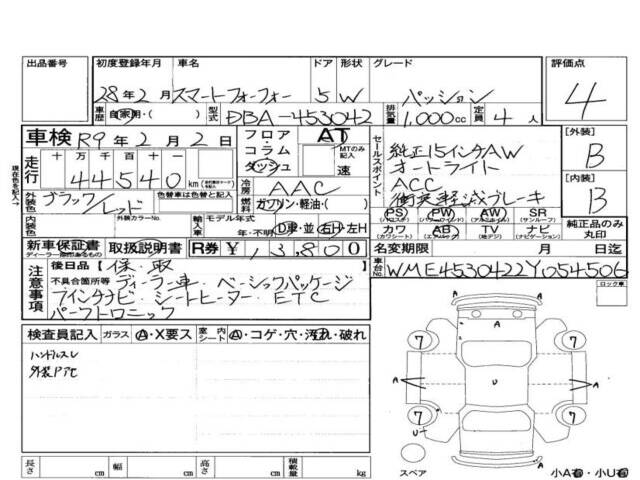 出品番号 初度登録年月 車名 ドア 形状 グレード 評価点
28年2月 スマートフォーフォー 5 W パッション 4
車歴 自家用・( ) 型式 DBA-453042 排気量 1,000cc 定員 4人
車検 R9年2月2日 フロア・コラム・ダッシュ AT MTのみ記入 速
走行 十万千百十一 44540 km
冷房 AAC
燃料 ガソリン・軽油・( )
セールスポイント
純正15インチAW
オートライト
ACC
衝突軽減ブレーキ
PS (パワステ) PW (パワーウィンドウ) AW (アルミホイール) SR (サンルーフ)
カワ (カワシート) AB (エアバッグ) TV (地デジ) ナビ (ナビゲーション)
[外装] B
[内装] B
純正品のみ丸印
現在色を記入
外装色 ブラック/レッド 色替車は替色 ( )
内装色 外装カラーNo. 輸入車 モデル年式 年・不明 D車・並 右H・左H
新車保証書 ディーラー印のあるもの 取扱説明書 R券 ¥13,800 名変期限 月 日迄
注意事項
後日品【保、取 】
不具合箇所等 ディーラー車 ベーシックパッケージ
7インチナビ シートヒーター ETC
パークトロニック
車台No. WME4530422Y054506
ロック車
検査員記入 ガラス A・X要ス 室内シート A・コゲ・穴・汚れ・破れ
ハンドルスレ
外装Pアセ
A
A
7 7
A U A
7 7
U
スペア 小A有・小U有
長さ cm 幅 cm 高さ cm 積載量 kg